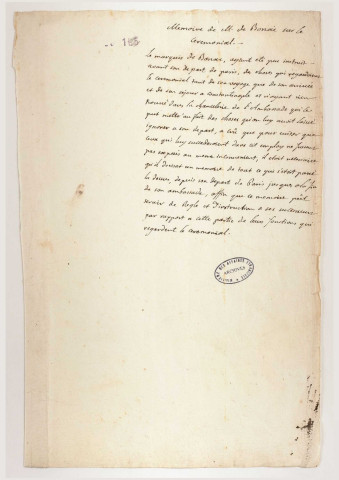 Memoire de Mr. de Bonac sur le
Ceremonial.
le marquis de Bonac, ayant été peu instruit
avant son depart de paris, des choses qui regardoient
le ceremonial tant de son voyage que de son arrivée
et de son sejour a constantinople et n'ayant rien
trouvé dans la chancelerie de l'ambassade qui le
put mettre au fait des choses qu'on luy avoit laissé
ignorer a son depart, a crû que pour eviter que
ceux qui luy succederoient dans cet employ ne fussent
pas exposés au meme inconvenient, il etoit necessaire
qu'il dressat un memoire de tout ce qui s'etoit passé
la dessus depuis son depart de Paris jusques a la fin
de son ambassade, affin que ce memoire peut
servir de regle et d'instruction a ses successeurs
par rapport a cette partie de leurs fonctions qui
regardent le ceremonial.
ARCHIVES